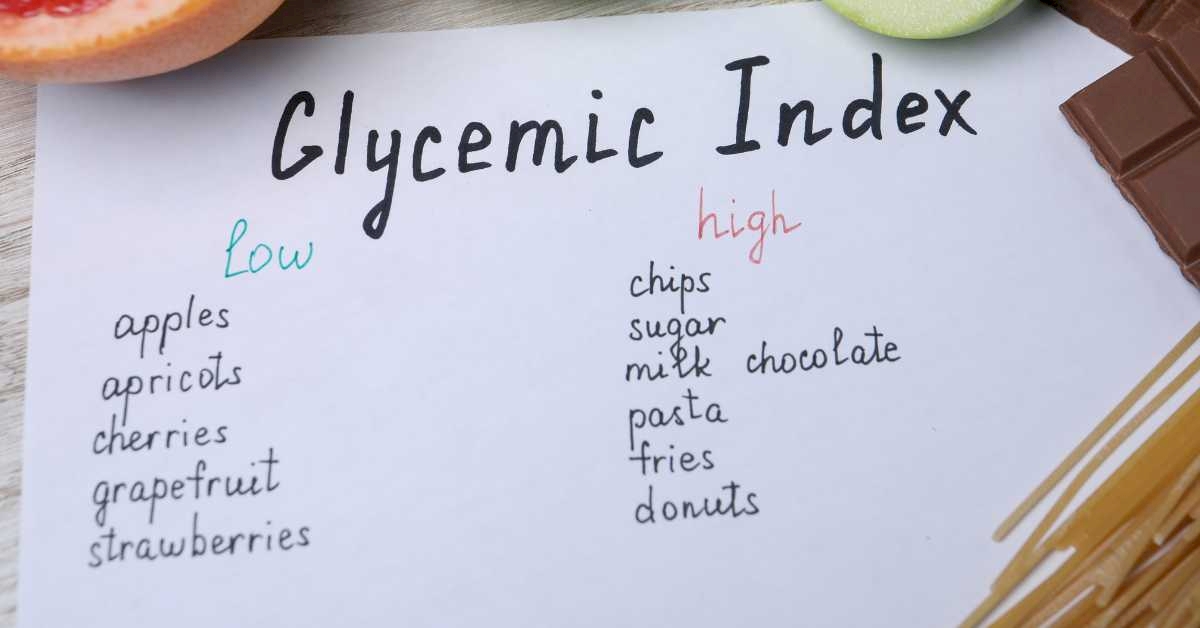 Glycemic Index
low
apples
apricots
cherries
grapefruit
strawberries
high
chips
sugar
milk chocolate
pasta
fries
donuts